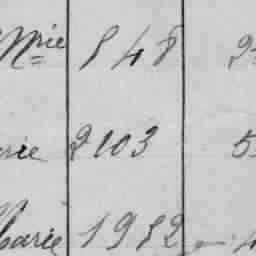 Mie 848 2
rie 2103 5
Marie 1982